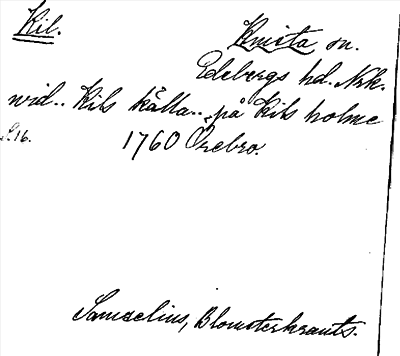 Kil.
Knista sn.
Edebergs hd. Nrk.
vid.. Kils källa.. på Kils holme
S. 16.
1760 Örebro.
Samzelius, Blomsterkrants.